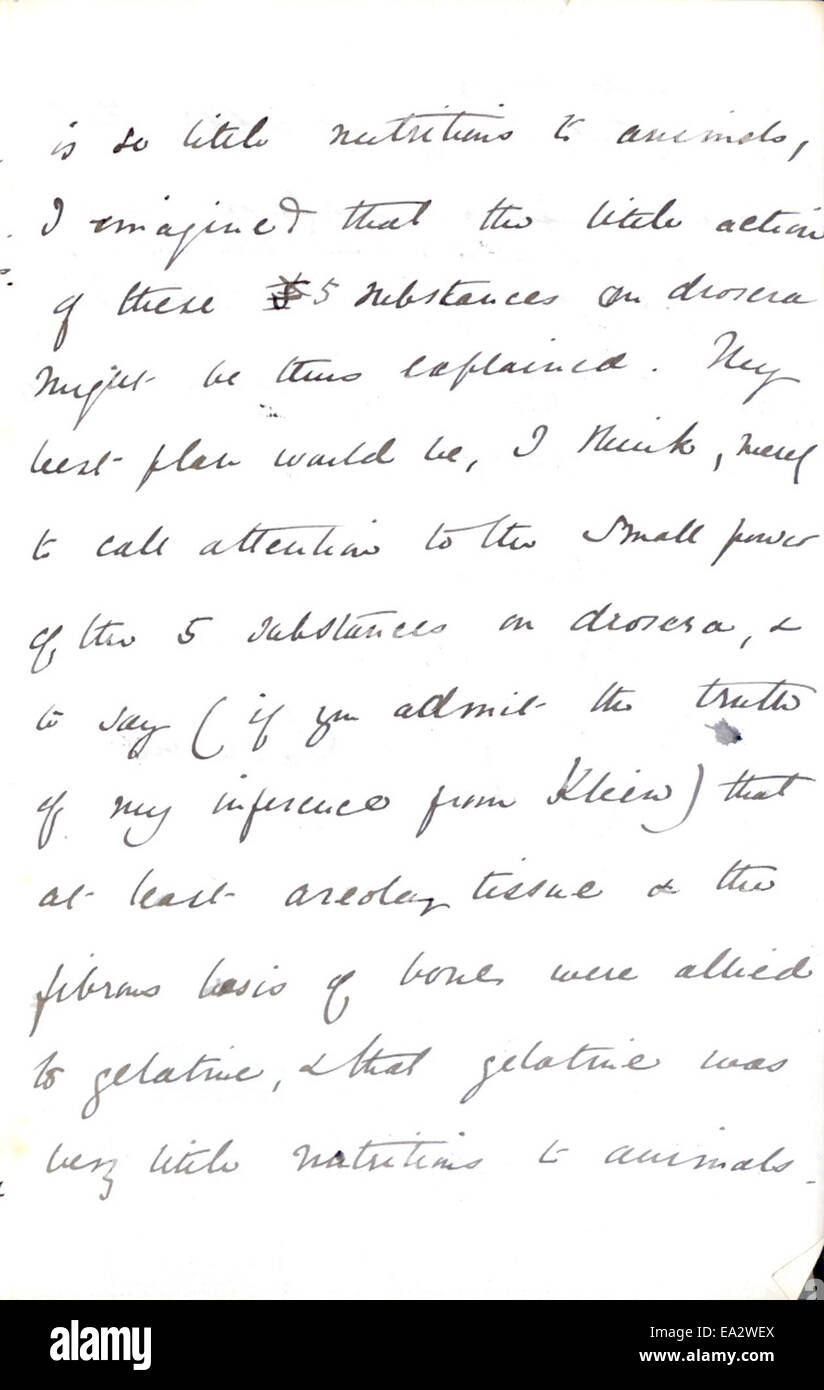 is so little nutritious to animals,
I imagined that the little action
of these 5 substances on drosera
might be thus explained. My
best plan would be, I think, merely
to call attention to the small power
of the 5 substances on drosera, &
to say (if you admit the truth
of my inference from Klein) that
at least areolar tissue & the
fibrous basis of bones were allied
to gelatine, & that gelatine was
very little nutritious to animals.
alamy
Image ID: EA2WEX
www.alamy.com